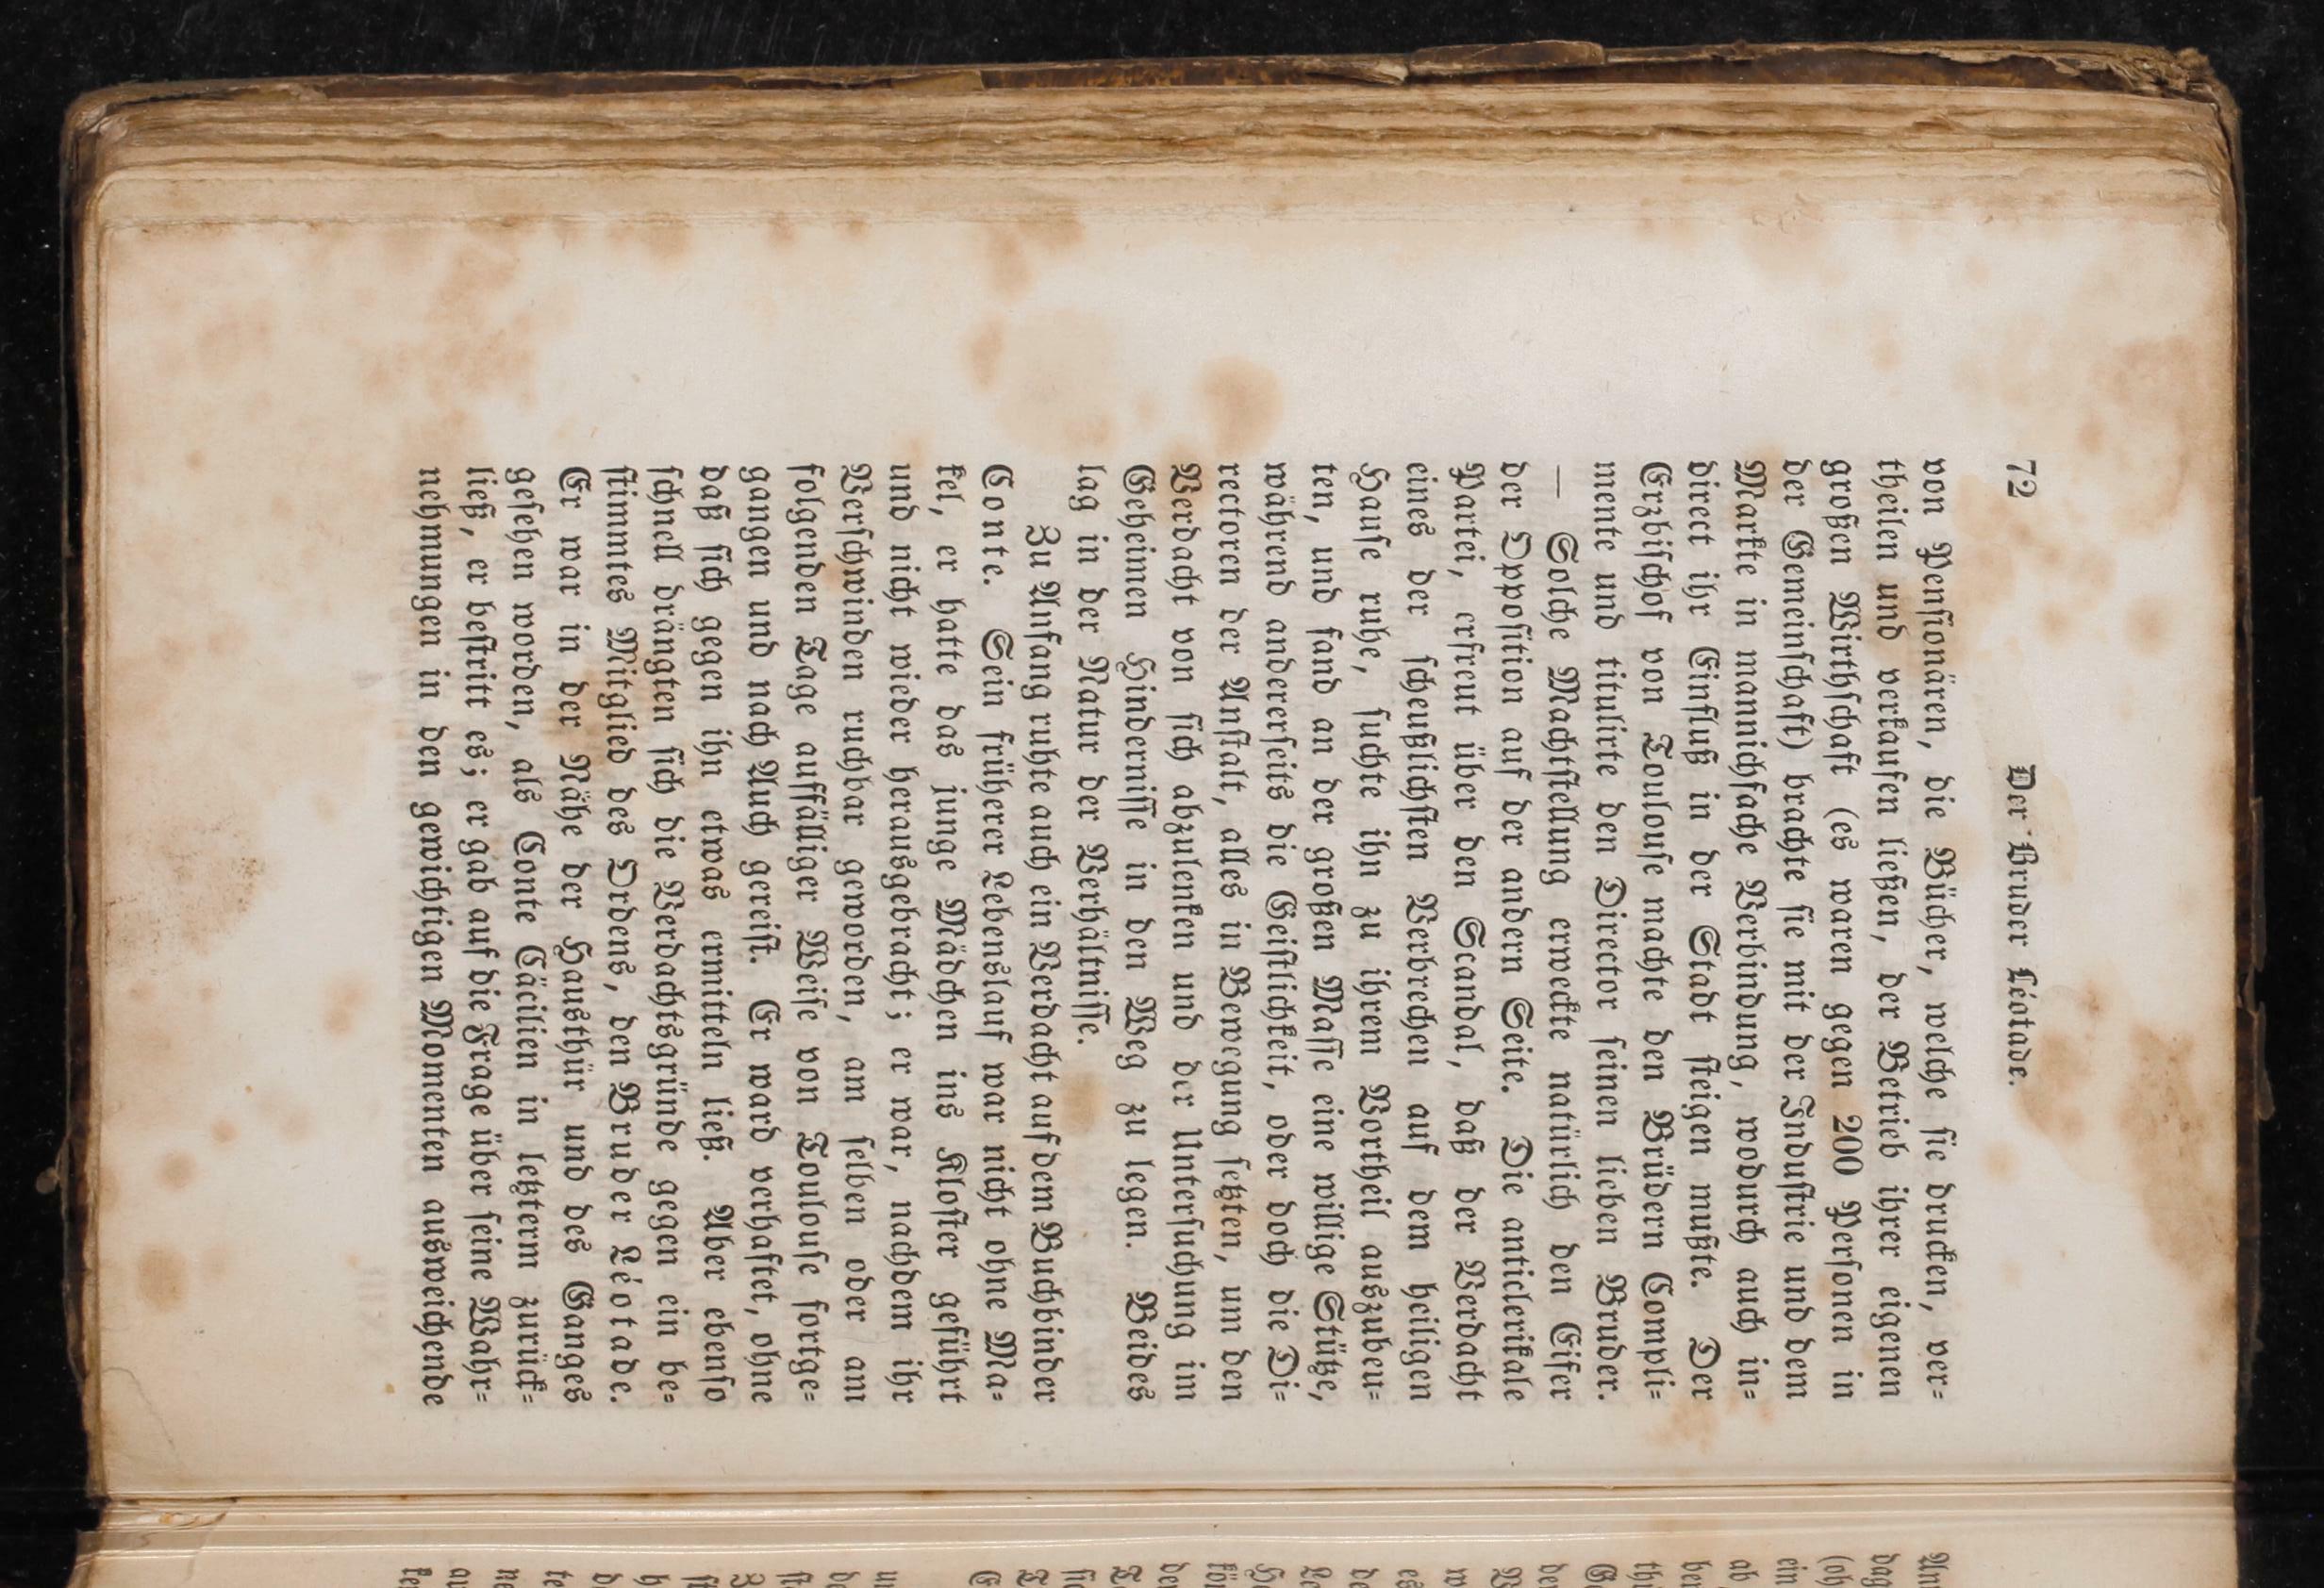 72 Der Bruder Léotade.
von Penſionären, die Bücher, welche ſie drucken, ver-
theilen und verkaufen ließen, der Betrieb ihrer eigenen
großen Wirthſchaft (es waren gegen 200 Perſonen in
der Gemeinſchaft) brachte ſie mit der Induſtrie und dem
Markte in mannichfache Verbindung, wodurch auch in-
direct ihr Einfluß in der Stadt ſteigen mußte. Der
Erzbiſchof von Toulouſe machte den Brüdern Compli-
mente und titulirte den Director ſeinen lieben Bruder.
— Solche Machtſtellung erweckte natürlich den Eifer
der Oppoſition auf der andern Seite. Die anticlerikale
Partei, erfreut über den Scandal, daß der Verdacht
eines der ſcheußlichſten Verbrechen auf dem heiligen
Hauſe ruhe, ſuchte ihn zu ihrem Vortheil auszubeu-
ten, und fand an der großen Maſſe eine willige Stütze,
während andererſeits die Geiſtlichkeit, oder doch die Di-
rectoren der Anſtalt, alles in Bewegung ſetzten, um den
Verdacht von ſich abzulenken und der Unterſuchung im
Geheimen Hinderniſſe in den Weg zu legen. Beides
lag in der Natur der Verhältniſſe.
Zu Anfang ruhte auch ein Verdacht auf dem Buchbinder
Conte. Sein früherer Lebenslauf war nicht ohne Ma-
kel, er hatte das junge Mädchen ins Kloſter geführt
und nicht wieder herausgebracht; er war, nachdem ihr
Verſchwinden ruchbar geworden, am ſelben oder am
folgenden Tage auffälliger Weiſe von Toulouſe fortge-
gangen und nach Auch gereiſt. Er ward verhaftet, ohne
daß ſich gegen ihn etwas ermitteln ließ. Aber ebenſo
ſchnell drängten ſich die Verdachtsgründe gegen ein be-
ſtimmtes Mitglied des Ordens, den Bruder Léotade.
Er war in der Nähe der Hausthür und des Ganges
geſehen worden, als Conte Cäcilien in letzterm zurück-
ließ, er beſtritt es; er gab auf die Frage über ſeine Wahr-
nehmungen in den gewichtigen Momenten ausweichende